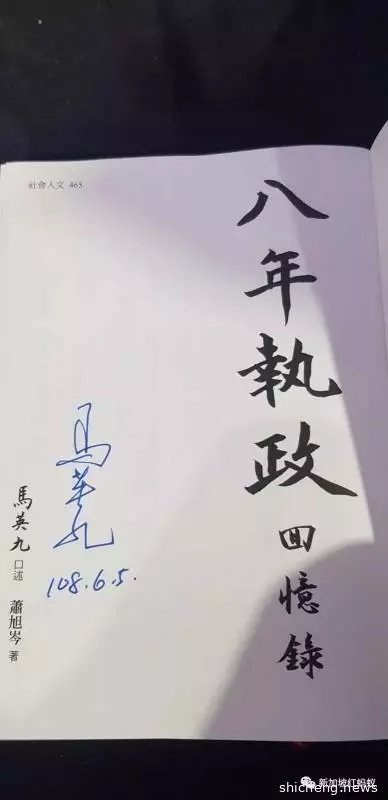 社會人文 465
八年執政
回憶錄
馬英九
108.6.5.
馬英九 口述 蕭旭岑 著
新加坡红蚂蚁
shicheng.news